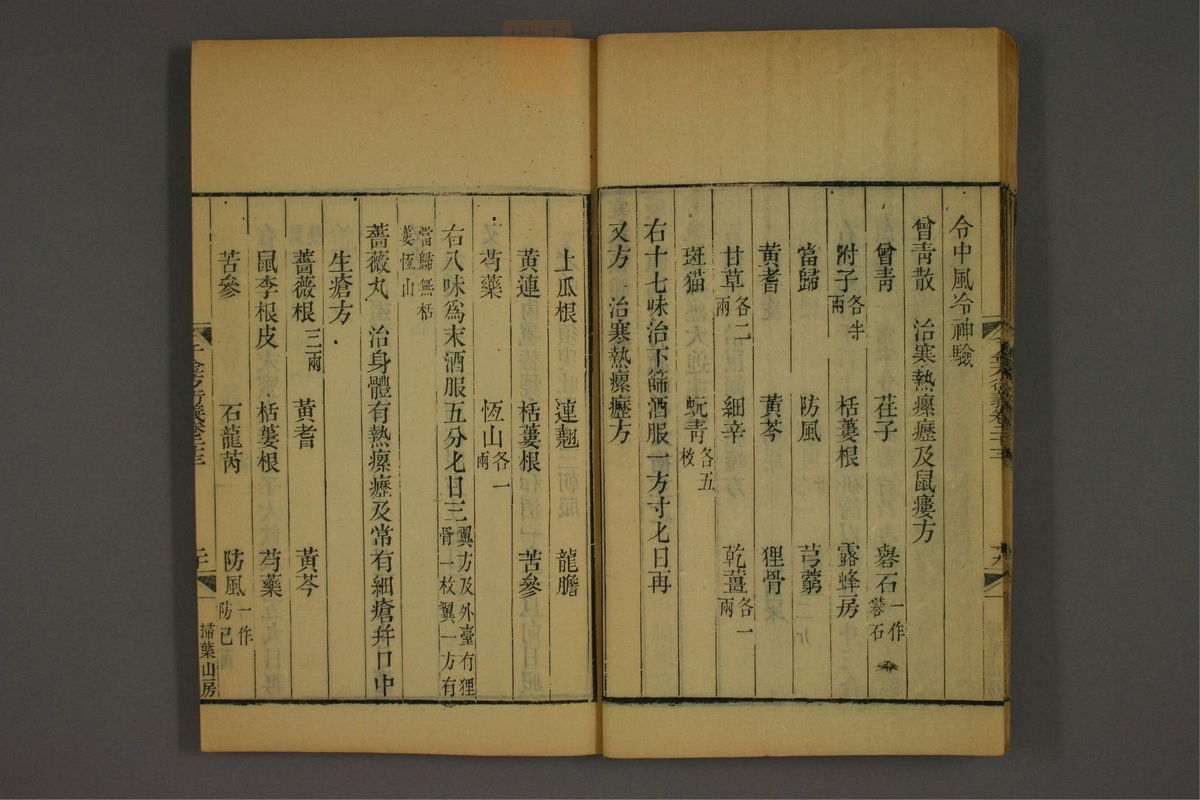 令中風冷神驗
曾青散　治寒熱瘰癧及鼠瘻方
曾青　荏子　礜石一作礬石
附子各半兩　栝蔞根　露蜂房
當歸　防風　芎藭
黃耆　黃芩　狸骨
甘草各二兩　細辛　乾薑各一兩
斑猫　蚖青各五枚
右十七味治下篩酒服一方寸匕日再
又方　治寒熱瘰癧方
土瓜根　連翹　龍膽
黃連　栝蔞根　苦參
芍藥　恆山各一兩
右八味爲末酒服五分匕日三翼方及外臺有狸骨一枚翼一方有
當歸無栝蔞恆山
薔薇丸　治身體有熱瘰癧及常有細瘡并口中
生瘡方
薔薇根三兩　黃耆　黃芩
鼠李根皮　栝蔞根　芍藥
苦參　石龍芮　防風一作防己
掃葉山房